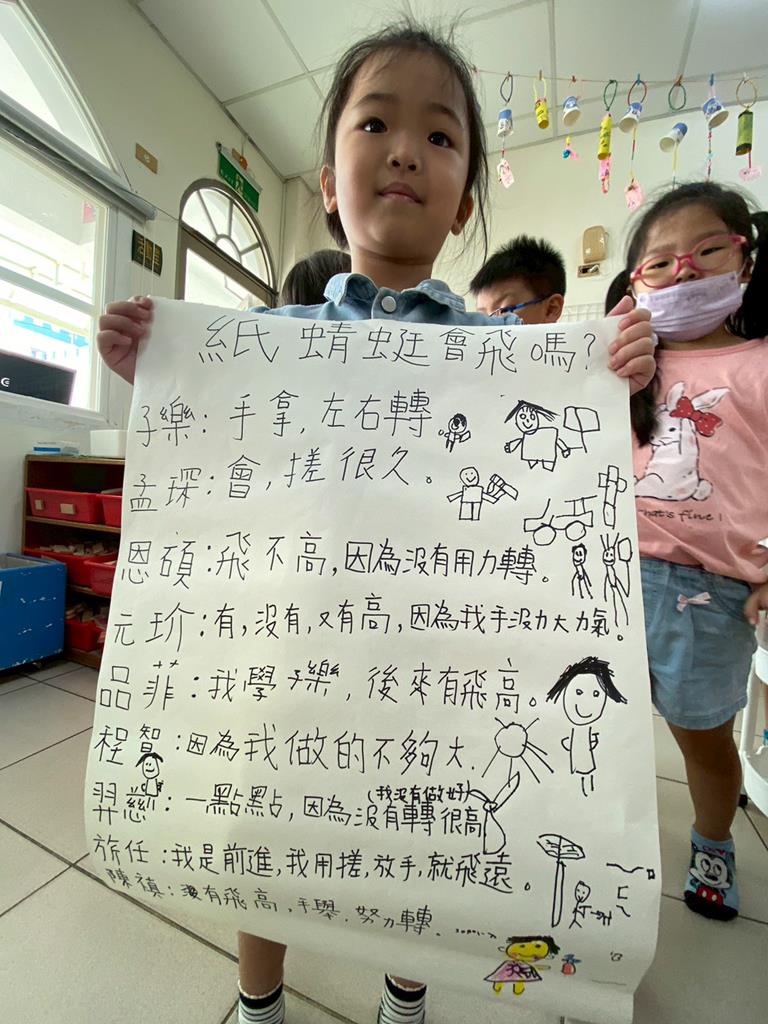 紙蜻蜓會飛嗎?
子樂:手拿,左右轉
孟琛:會,搓很久。
恩碩:飛不高,因為沒有用力轉。
元玠:有,沒有,又有高,因為我手沒力大力氣。
品菲:我學子樂,後來有飛高。
程智:因為我做的不夠大.
(我沒有做好)
羿慈:一點點,因為沒有轉很高
旅任:我是前進,我用搓,放手,就飛遠。
陳禛:沒有飛高,手舉,努力轉。
that's fine!